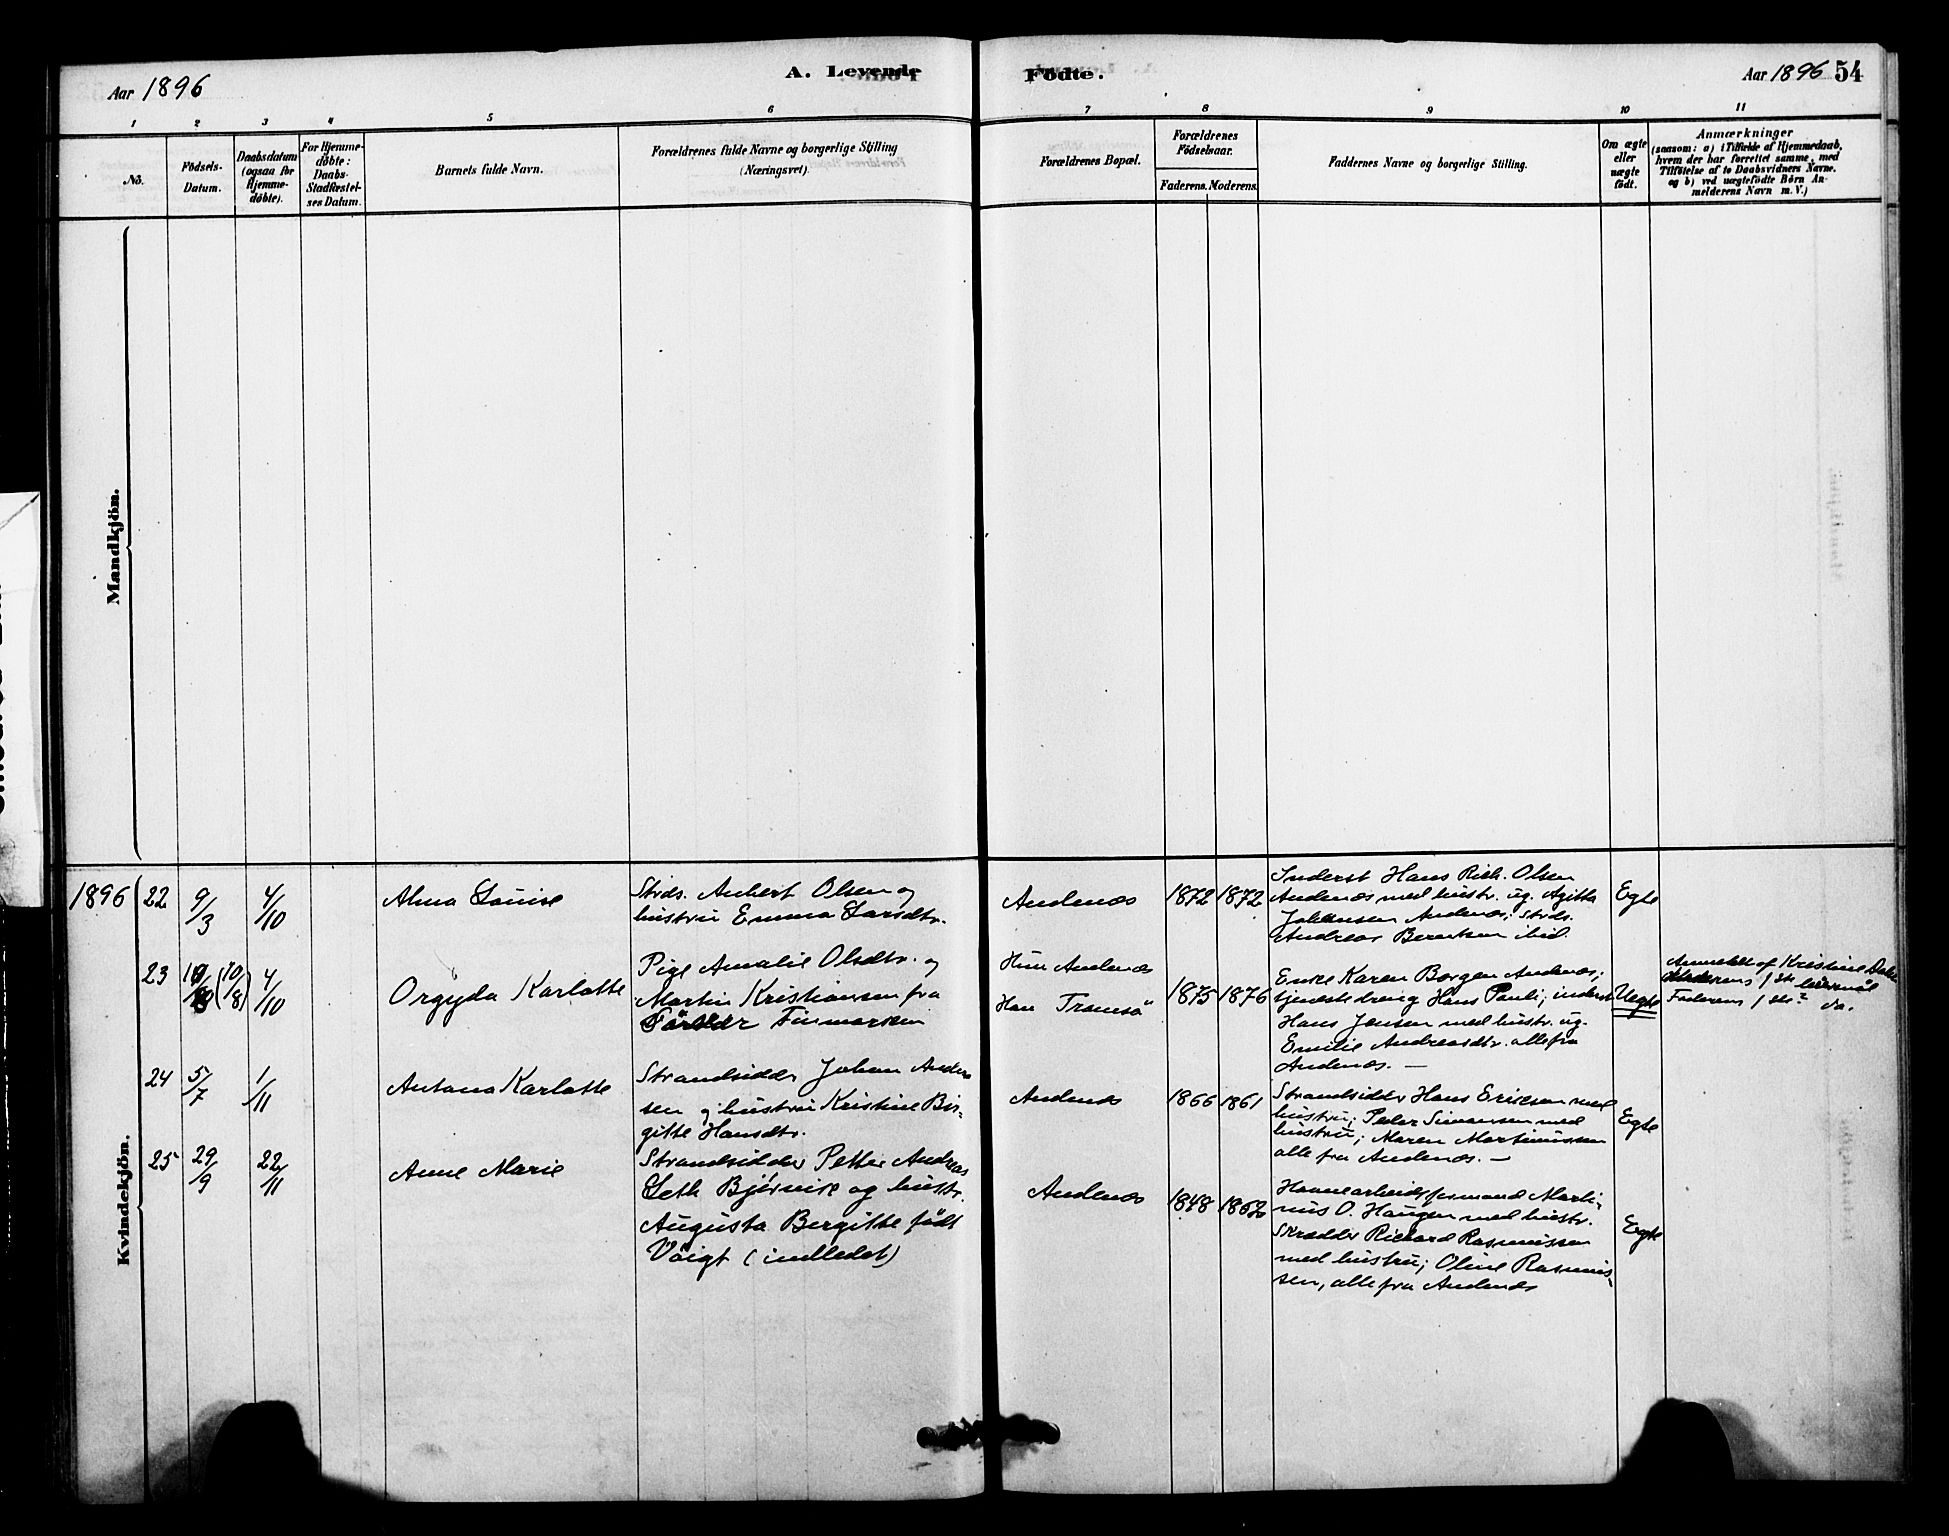 Aar 1896
A. Levende
Födte.
Aar 1896 54
1 2 3 4 5 6 7 8 9 10 11
No.
Födsels-
Datum.
Daabsdatum
(ogsaa for
Hjemme-
døbte).
For Hjemme-
døbte:
Daabs-
Stadfæstel-
ses Datum.
Barnets fulde Navn.
Forældrenes fulde Navne og borgerlige Stilling
(Næringsvei).
Forældrenes Bopæl.
Forældrenes
Födselsaar.
Faderens. Moderens.
Faddernes Navne og borgerlige Stilling.
Om ægte
eller
uægte
födt.
Anmærkninger
(saasom: a) i Tilfælde af Hjemmedaab,
hvem der har forrettet samme, med
Tilføielse af to Daabsvidners Navne.
og b) ved uægtefødte Børn An-
melderens Navn m.V.)
Mandkjön.
Kvindekjön.
1896 22 9/3 4/10
Alma Louise
Strds. Anbert Olsen og
hustru Emma Larsdtr.
Andenæs
1872 1872
Inderst Hans Rich. Olsen
Andenæs med hustr. ug. Agitta
Johansen Andenæs; Strds.
Andreas Berentsen ibid.
Egte
23 (10/8) 4/10
Orgyda Karlotte
Pige Amalie Olsdtr. og
Martin Kristiansen fra
Finmarken
Hun Andenæs
Han Tromsö
1875 1876
Enke Karen Borgen Andenæs;
tjenestedreng Hans Pauli; inderst
Hans Jensen med hustr. ug.
Emilie Andreasdtr. alle fra
Andenæs. —
Uegte
Anmeldt af Kristine
Moderens 1ste leiermål
Faderens 1ste do.
24 5/7 1/11
Antona Karlotte
Strandsidder Johan Ander
sen og hustru Kristine Bir-
gitte Hansdtr.
Andenæs
1866 1861
Strandsidder Hans Eriksen med
hustru; Peder Simonsen med
hustru; Maren Martinussen
alle fra Andenæs. —
Egte
25 29/9 22/11
Anne Marie
Strandsidder Petter Andreas
Seth Bjérvik og hustr.
Augusta Bergitte født
Voigt (indledet)
Andenæs
1848 1852
Havnearbeidsformand Marti-
nus O. Haugen med hustr.
Skrædder Richard Rasmussen
med hustru; Oline Rasmus-
sen, alle fra Andenæs
Egte